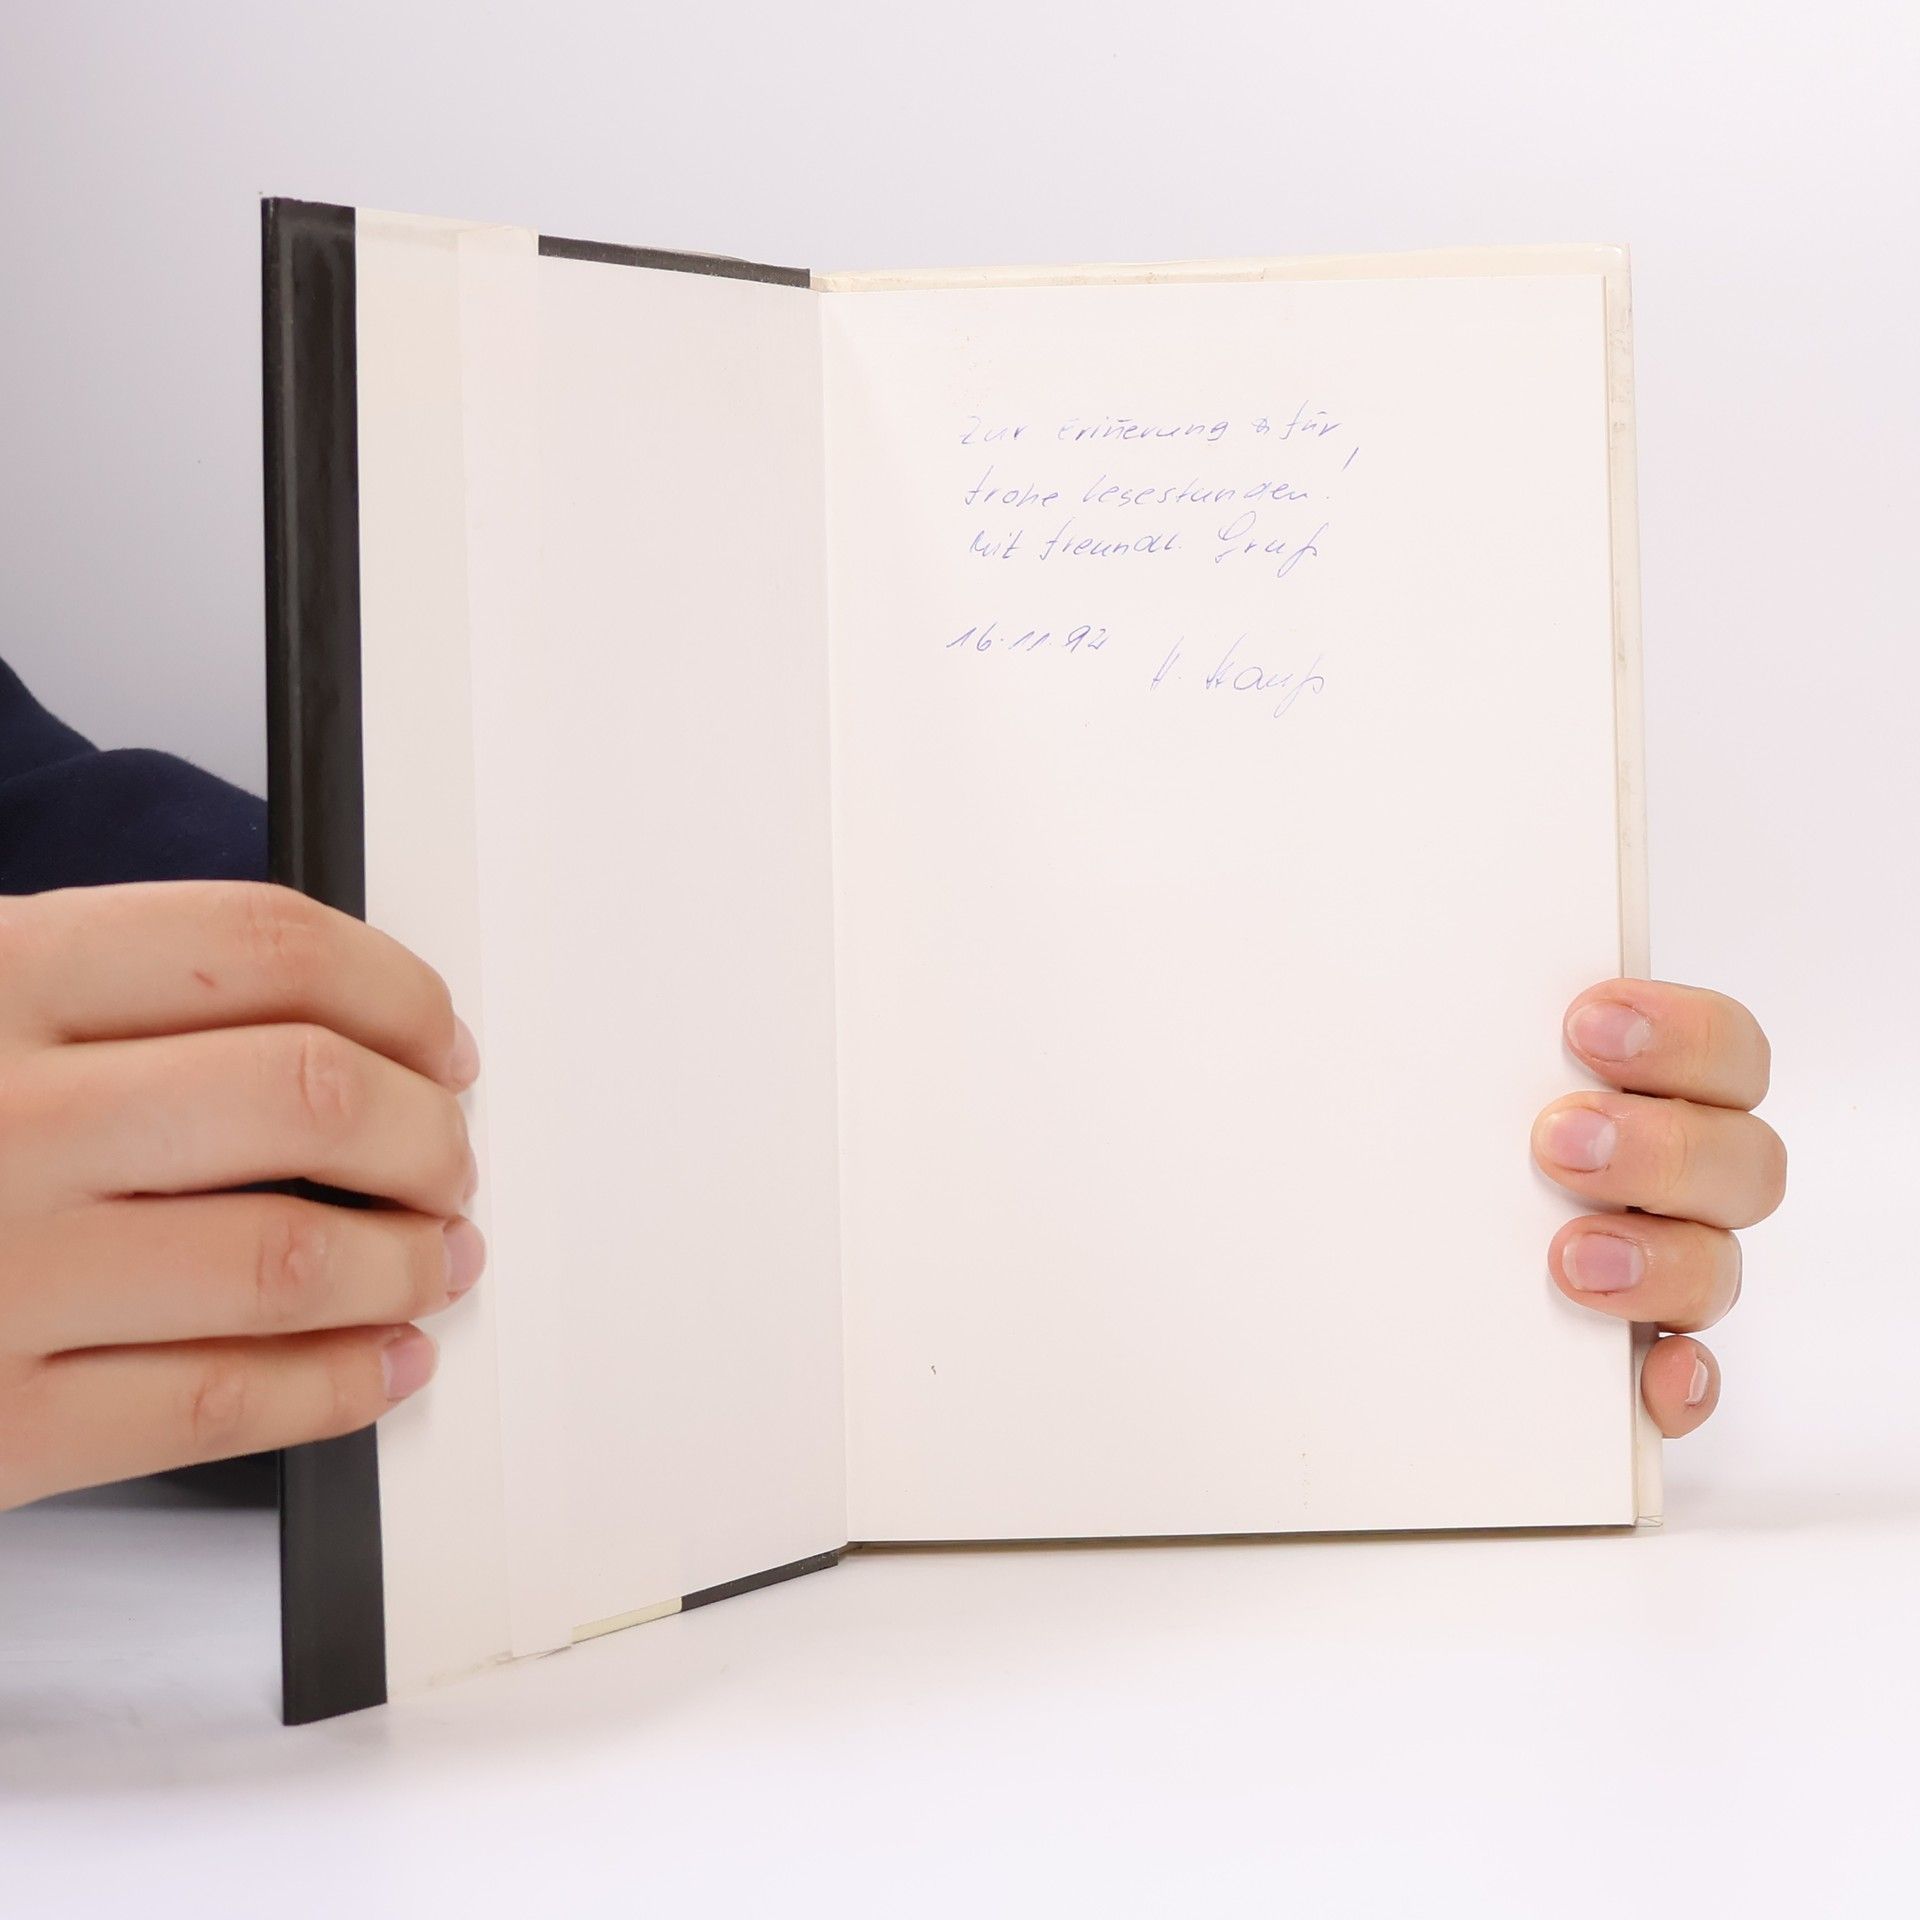 Zur Erin̄erung & für
frohe Lesestunden!
Mit freundl. Gruß
16.11.92
H.